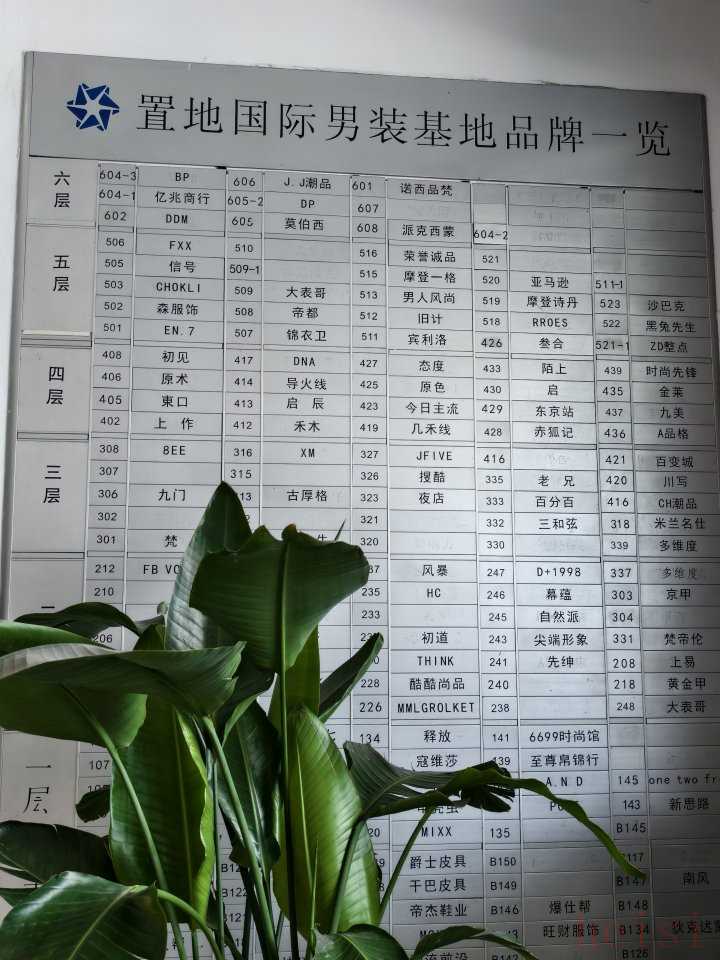 置地国际男装基地品牌一览
六层
604-3 BP 606 J.J潮品 601 诺西品梵
604-1 亿兆商行 605-2 DP 607
602 DDM 605 莫伯西 608 派克西蒙 604-2
五层
506 FXX 510 516 荣誉诚品 521
505 信号 509-1 515 摩登一格 520 亚马逊 511-1
503 CHOKLI 509 大表哥 513 男人风尚 519 摩登诗丹 523 沙巴克
502 森服饰 508 帝都 512 旧计 518 RROES 522 黑兔先生
501 EN.7 507 锦衣卫 511 宾利洛 426 叁合 521-1 ZD整点
四层
408 初见 417 DNA 427 态度 433 陌上 439 时尚先锋
406 原术 414 导火线 425 原色 430 启 435 金莱
405 東口 413 启辰 423 今日主流 429 东京站 437 九美
402 上作 412 禾木 419 几禾线 428 赤狐记 436 A品格
三层
308 8EE 316 XM 327 JFIVE 416 421 百变城
307 315 326 搜酷 335 老兄 420 川写
306 九门 313 古厚格 323 夜店 333 百分百 416 CH潮品
302 321 332 三和弦 318 米兰名仕
301 梵 320 330 339 多维度
212 FB VO 风暴 247 D+1998 337 多维度
210 235 HC 246 幕蕴 303 京甲
233 245 自然派 304
206 初道 243 尖端形象 331 梵帝伦
THINK 241 先绅 208 上易
228 酷酷尚品 240 218 黄金甲
226 MMLGROLKET 238 248 大表哥
一层
134 释放 141 6699时尚馆
107 寇维莎 139 至尊帛锦行
A.N.D 145 one two fr
143 新思路
MIXX 135 B145
爵士皮具 B150
B122 干巴皮具 B149 B147 南风
B121 帝杰鞋业 B146 爆仕帮 B148
B144 旺财服饰 B134 狄克达